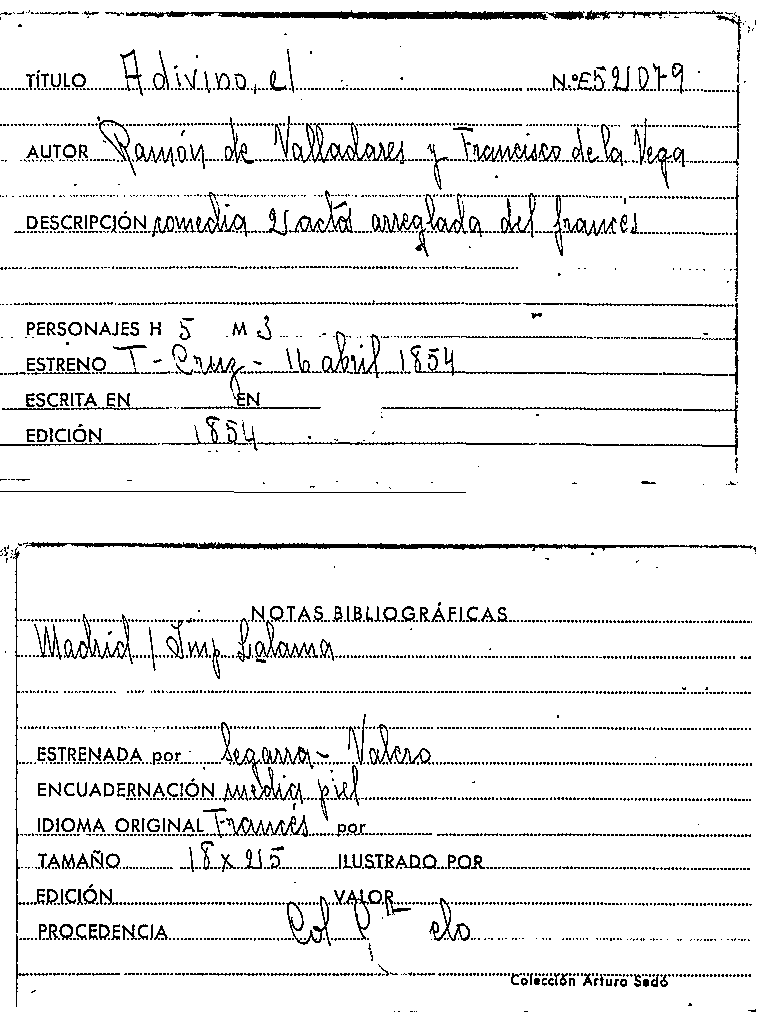 TÍTULO Adivino, el N.º E 521079
AUTOR Ramón de Valladares y Francisco de la Vega
DESCRIPCIÓN comedia 2 actos arreglada del francés
PERSONAJES H 5 M 3
ESTRENO T - Cruz - 16 abril 1854
ESCRITA EN EN
EDICIÓN 1854
NOTAS BIBLIOGRÁFICAS
Madrid / Imp Lalama
ESTRENADA por Segarra - Valero
ENCUADERNACIÓN media piel
IDIOMA ORIGINAL Francés por
TAMAÑO 18 x 25 ILUSTRADO POR
EDICIÓN VALOR
PROCEDENCIA Col
Colección Arturo Sedó